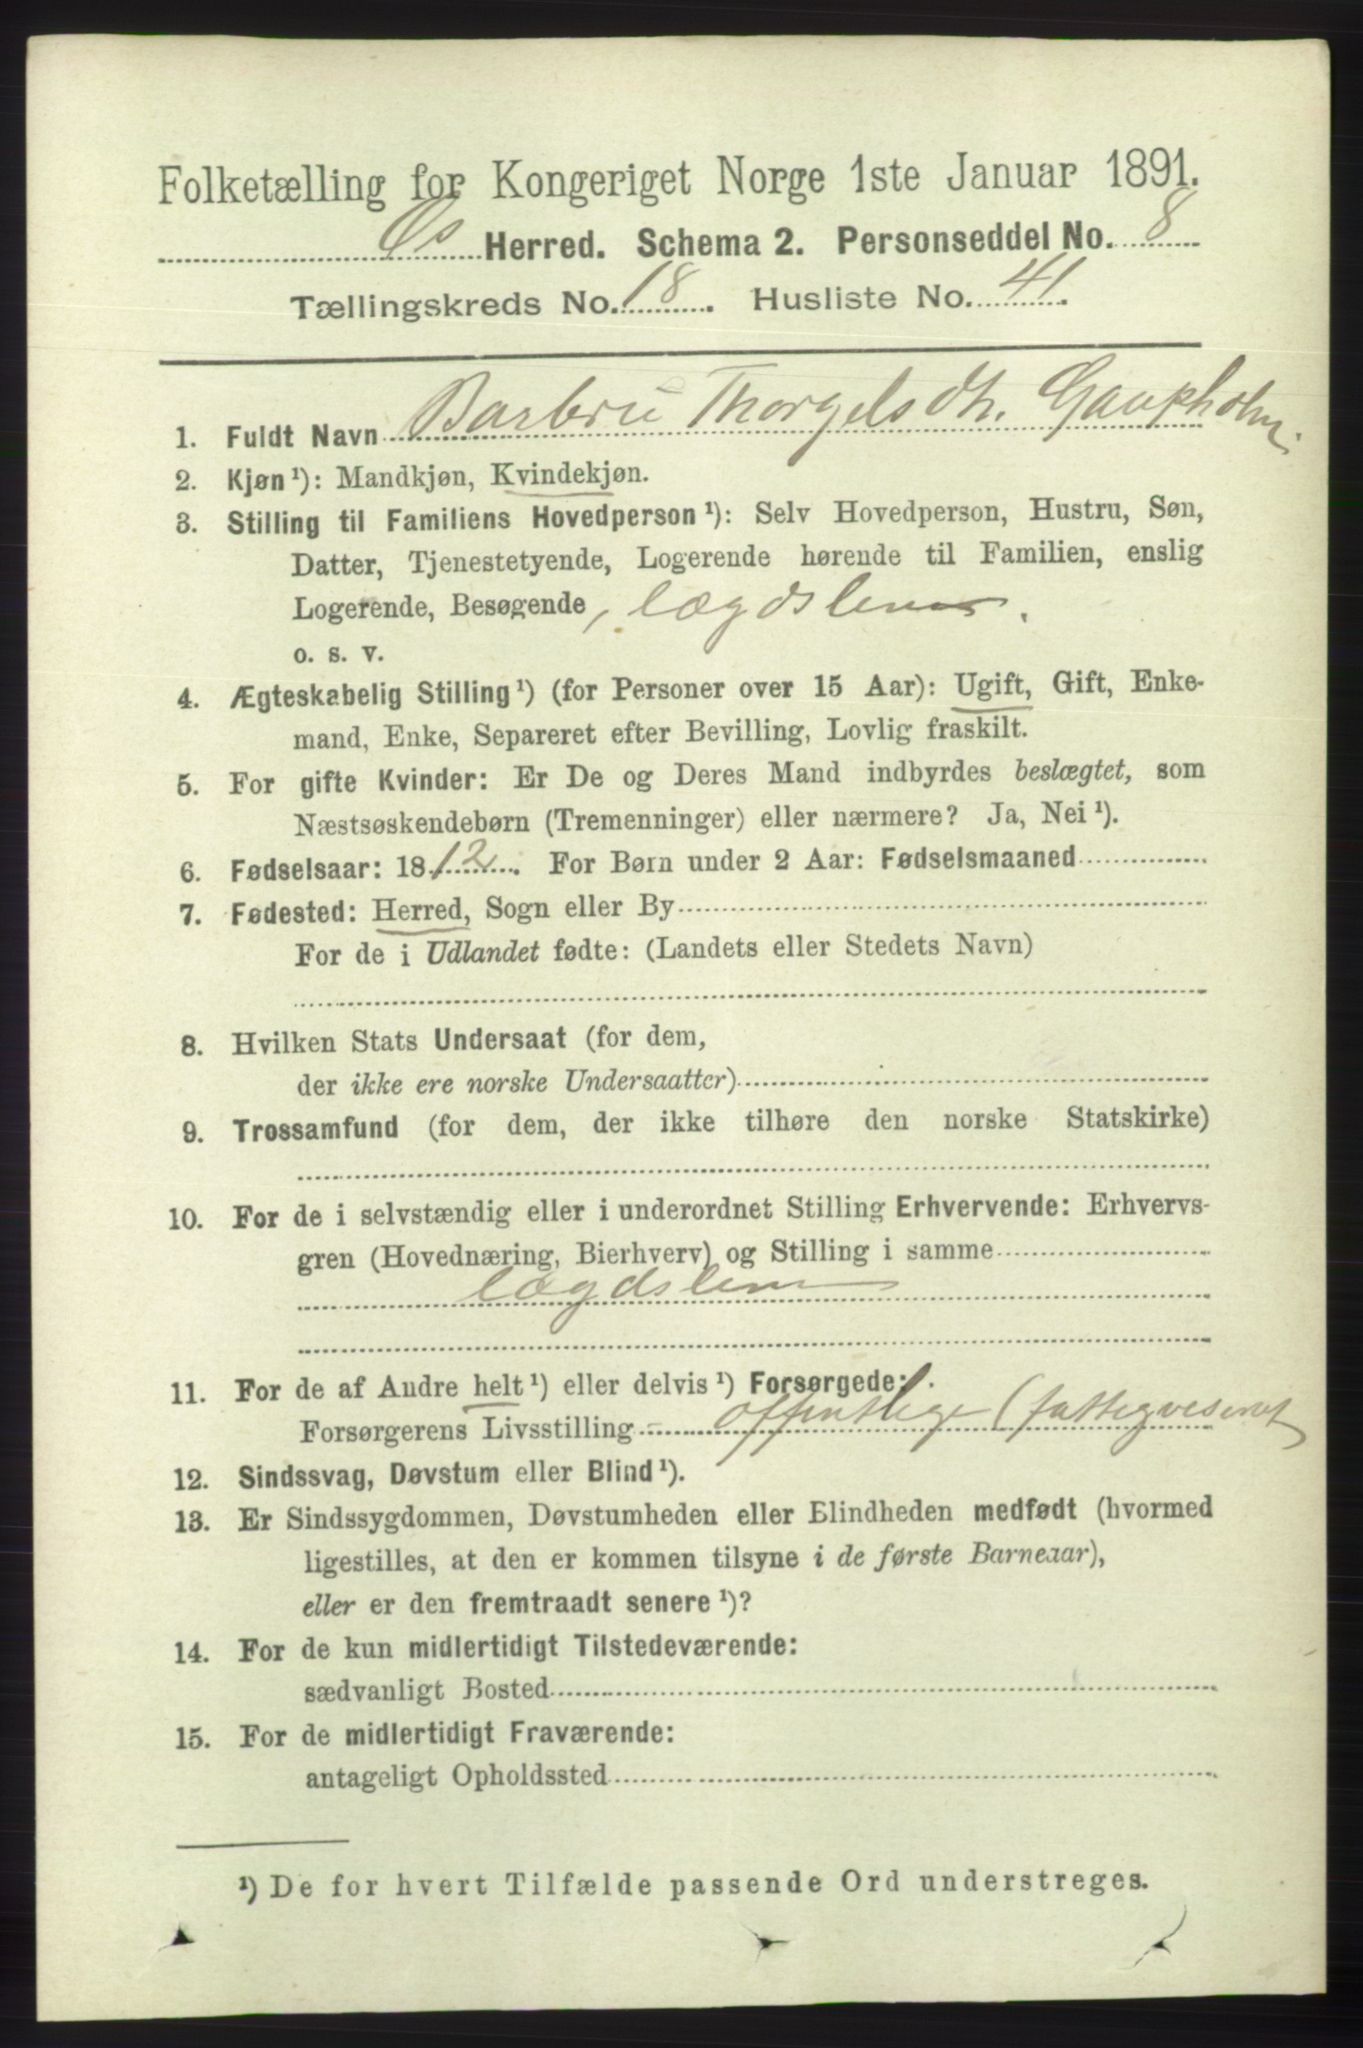 Folketælling for Kongeriget Norge 1ste Januar 1891.
Os Herred. Schema 2. Personseddel No. 8
Tællingskreds No. 18. Husliste No. 41.
1. Fuldt Navn Barbru Thorgelsdtr. Gaupholm.
2. Kjøn ¹): Mandkjøn, Kvindekjøn.
3. Stilling til Familiens Hovedperson ¹): Selv Hovedperson, Hustru, Søn,
Datter, Tjenestetyende, Logerende hørende til Familien, enslig
Logerende, Besøgende, lægdslem.
o. s. v.
4. Ægteskabelig Stilling ¹) (for Personer over 15 Aar): Ugift, Gift, Enke-
mand, Enke, Separeret efter Bevilling, Lovlig fraskilt.
5. For gifte Kvinder: Er De og Deres Mand indbyrdes beslægtet, som
Næstsøskendebørn (Tremenninger) eller nærmere? Ja, Nei ¹).
6. Fødselsaar: 1812. For Børn under 2 Aar: Fødselsmaaned
7. Fødested: Herred, Sogn eller By
For de i Udlandet fødte: (Landets eller Stedets Navn)
8. Hvilken Stats Undersaat (for dem,
der ikke ere norske Undersaatter)
9. Trossamfund (for dem, der ikke tilhøre den norske Statskirke)
10. For de i selvstændig eller i underordnet Stilling Erhvervende: Erhvervs-
gren (Hovednæring, Bierhverv) og Stilling i samme
lægdslem
11. For de af Andre helt ¹) eller delvis ¹) Forsørgede:
Forsørgerens Livsstilling - offentlige (fattigvesenet
12. Sindssvag, Døvstum eller Blind ¹).
13. Er Sindssygdommen, Døvstumheden eller Blindheden medfødt (hvormed
ligestilles, at den er kommen tilsyne i de første Barneaar),
eller er den fremtraadt senere ¹)?
14. For de kun midlertidigt Tilstedeværende:
sædvanligt Bosted
15. For de midlertidigt Fraværende:
antageligt Opholdssted
¹) De for hvert Tilfælde passende Ord understreges.